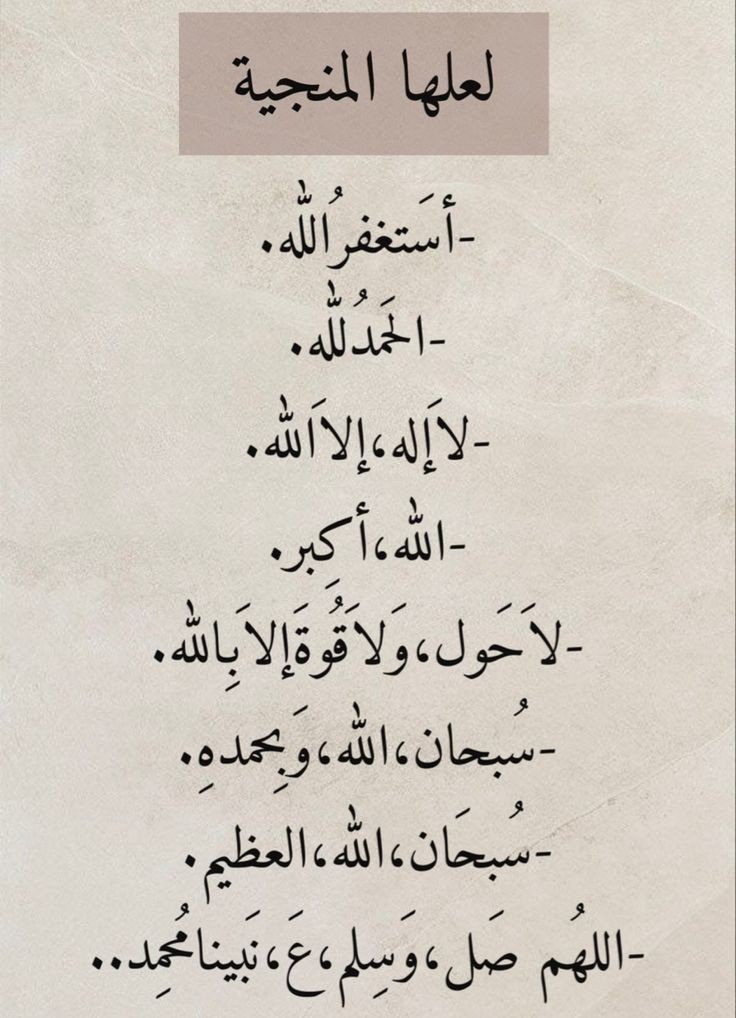 لعلها المنجية
-أسَتغفرُالله.
-الحَمدُلله.
-لاَإله،إلاَالله.
-الله،أكبِر.
-لاَحَول،وَلاَقُوةَإلاَبِالله.
-سُبحان،الله،وَبِحمدهِ.
-سُبحَان،الله،العظيم.
-اللهُم صَل،وَسِلم،عَ،نَبينامُحمِد..